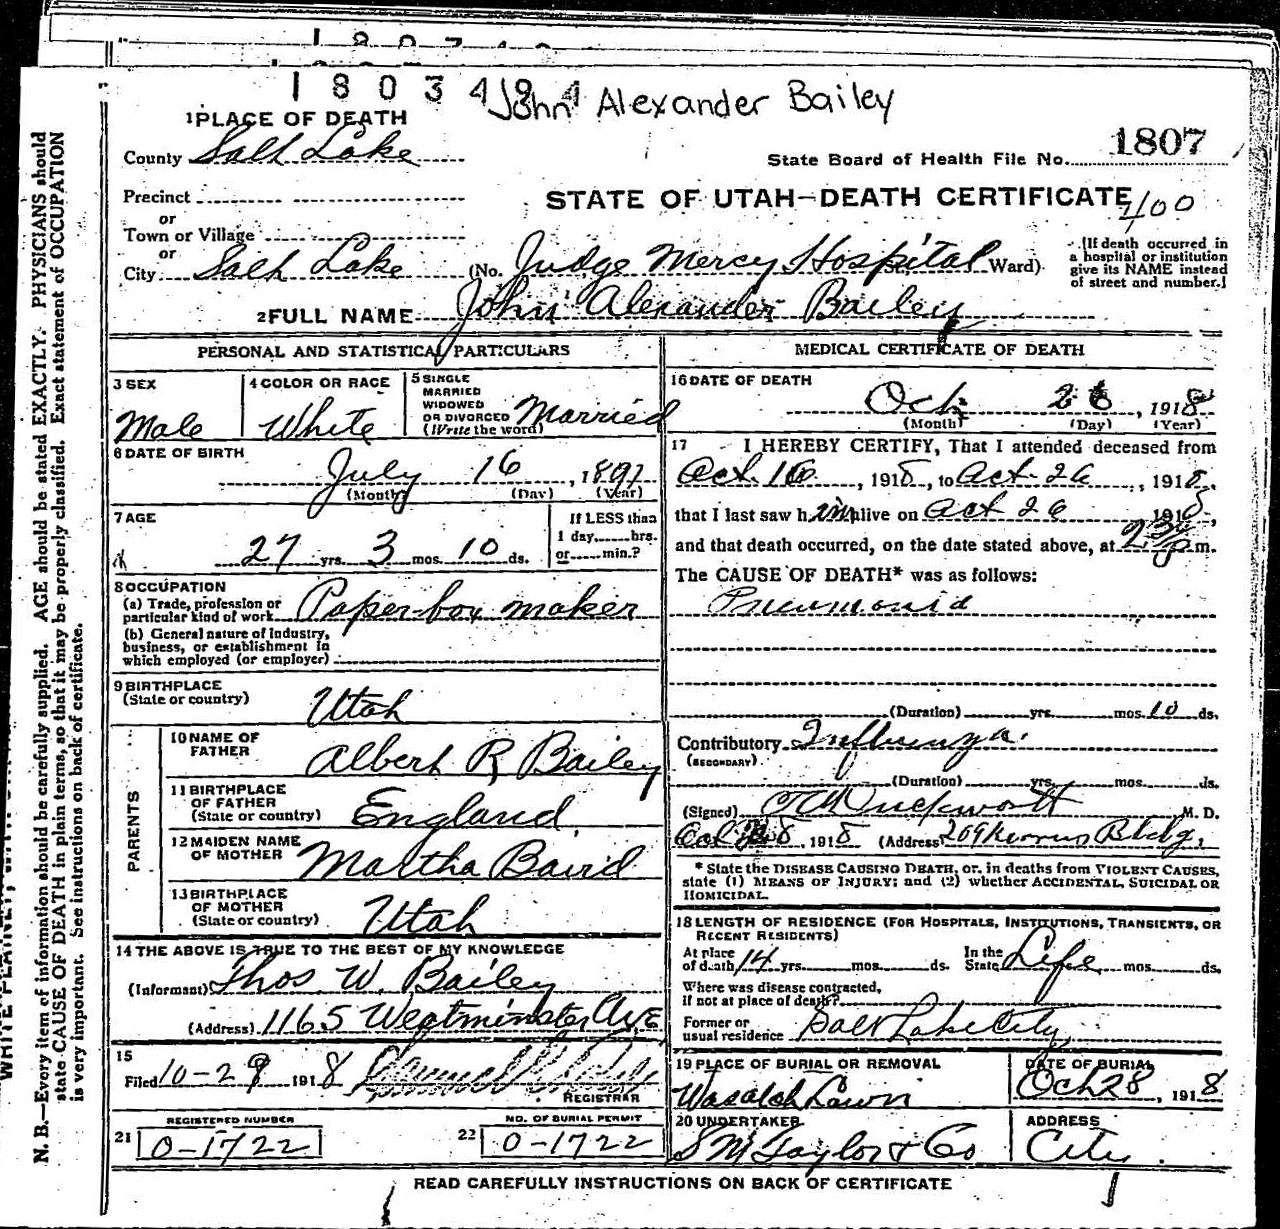 1803494
John Alexander Bailey
1 PLACE OF DEATH
County Salt Lake
State Board of Health File No. 1807
Precinct
or
STATE OF UTAH—DEATH CERTIFICATE
400
Town or Village
or
City Salt Lake (No. Judge Mercy Hospital St. Ward)
(If death occurred in
a hospital or institution
give its NAME instead
of street and number.)
2 FULL NAME John Alexander Bailey
PERSONAL AND STATISTICAL PARTICULARS
3 SEX
Male
4 COLOR OR RACE
White
5 SINGLE
MARRIED
WIDOWED
OR DIVORCED
(Write the word)
Married
6 DATE OF BIRTH
July 16, 1891
(Month) (Day) (Year)
7 AGE
27 yrs. 3 mos. 10 ds.
If LESS than
1 day......hrs.
or......min.?
8 OCCUPATION
(a) Trade, profession or
particular kind of work
Paper-box maker
(b) General nature of Industry,
business, or establishment in
which employed (or employer)
9 BIRTHPLACE
(State or country)
Utah
PARENTS
10 NAME OF
FATHER
Albert R Bailey
11 BIRTHPLACE
OF FATHER
(State or country)
England
12 MAIDEN NAME
OF MOTHER
Martha Baird
13 BIRTHPLACE
OF MOTHER
(State or country)
Utah
14 THE ABOVE IS TRUE TO THE BEST OF MY KNOWLEDGE
(Informant) Thos. W. Bailey
(Address) 1165 Westminster Ave
15
Filed 10-29 1918
REGISTRAR
REGISTERED NUMBER
21 O-1722
NO. OF BURIAL PERMIT
22 O-1722
MEDICAL CERTIFICATE OF DEATH
16 DATE OF DEATH
Oct. 26, 1918
(Month) (Day) (Year)
17 I HEREBY CERTIFY, That I attended deceased from
Oct. 16, 1918, to Oct. 26, 1918,
that I last saw him alive on Oct 26 1918,
and that death occurred, on the date stated above, at 2 30 p m.
The CAUSE OF DEATH* was as follows:
Pneumonia
(Duration) yrs. mos. 10 ds.
Contributory Influenza.
(SECONDARY)
(Duration) yrs. mos. ds.
(Signed) Duckworth M. D.
Oct 28, 1918 (Address) 209 Kearns Bldg.
* State the DISEASE CAUSING DEATH, or, in deaths from VIOLENT CAUSES,
state (1) MEANS OF INJURY; and (2) whether ACCIDENTAL, SUICIDAL OR
HOMICIDAL.
18 LENGTH OF RESIDENCE (FOR HOSPITALS, INSTITUTIONS, TRANSIENTS, OR
RECENT RESIDENTS)
At place
of death 14 yrs. mos. ds.
In the
State Life mos. ds.
Where was disease contracted,
if not at place of death?
Former or
usual residence Salt Lake City
19 PLACE OF BURIAL OR REMOVAL
Wasatch Lawn
DATE OF BURIAL
Oct 28, 1918
20 UNDERTAKER
S M Taylor & Co
ADDRESS
City.
READ CAREFULLY INSTRUCTIONS ON BACK OF CERTIFICATE
N. B.—Every item of information should be carefully supplied. AGE should be stated EXACTLY. PHYSICIANS should
state CAUSE OF DEATH in plain terms, so that it may be properly classified. Exact statement of OCCUPATION
is very important. See instructions on back of certificate.